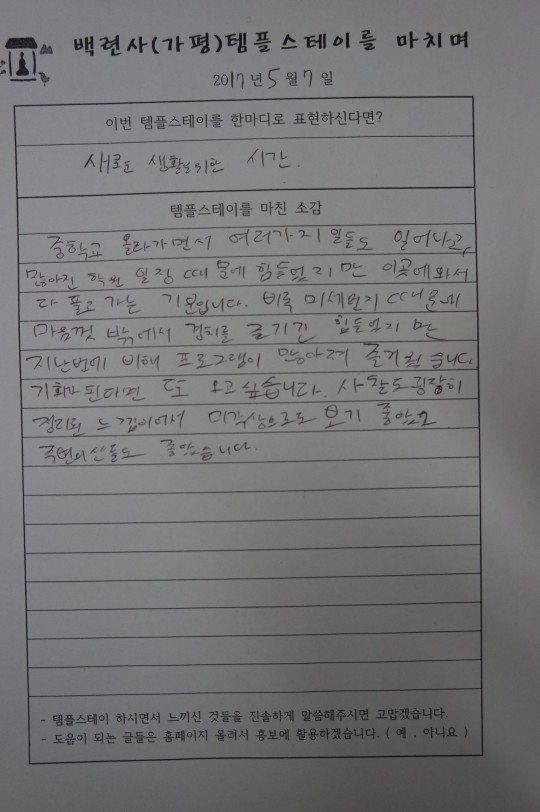 백련사(가평)템플스테이를 마치며
2017년 5월 7일
이번 템플스테이를 한마디로 표현하신다면?
새로운 생활을위한 시간.
템플스테이를 마친 소감
중학교 올라가면서 여러가지 일들도 일어나고,
많아진 학원 일정 때문에 힘들었지만 이곳에와서
다 풀고 가는 기분입니다. 비록 미세먼지 때문에
마음껏 밖에서 경치를 즐기긴 힘들었지만
지난번에 비해 프로그램이 많아져 즐거웠습니다.
기회가 된다면 또 오고싶습니다. 사찰도 굉장히
정리된 느낌이어서 미각상으로도 보기 좋았고
주변의산들도 좋았습니다.
- 템플스테이 하시면서 느끼신 것들을 진솔하게 말씀해주시면 고맙겠습니다.
- 도움이 되는 글들은 홈페이지 올려서 홍보에 활용하겠습니다. ( 예 , 아니요 )